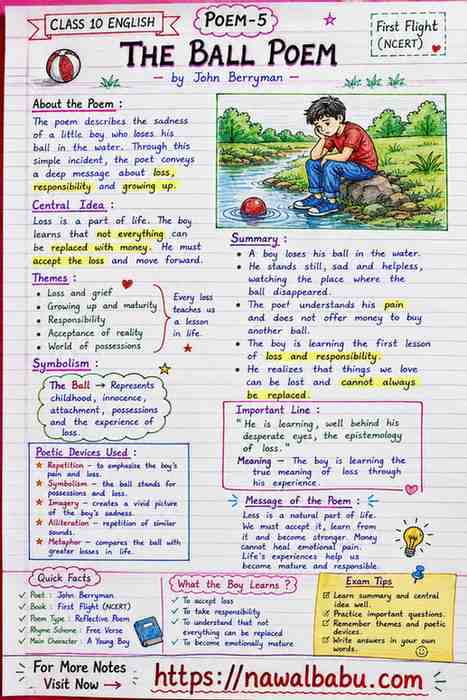 CLASS 10 ENGLISH
POEM-5
First Flight
(NCERT)
THE BALL POEM
— by John Berryman —
About the Poem :
The poem describes the sadness
of a little boy who loses his
ball in the water. Through this
simple incident, the poet conveys
a deep message about loss,
responsibility and growing up.
Central Idea :
Loss is a part of life. The boy
learns that not everything can
be replaced with money. He must
accept the loss and move forward.
Themes :
• Loss and grief
• Growing up and maturity
• Responsibility
• Acceptance of reality
• World of possessions
Every loss
teaches us
a lesson
in life.
Symbolism :
The Ball → Represents
childhood, innocence,
attachment, possessions
and the experience of
loss.
Poetic Devices Used :
★ Repetition – to emphasize the boy's
pain and loss.
★ Symbolism – the ball stands for
possessions and loss.
★ Imagery – creates a vivid picture
of the boy's sadness.
★ Alliteration – repetition of similar
sounds.
★ Metaphor – compares the ball with
greater losses in life.
Summary :
• A boy loses his ball in the water.
• He stands still, sad and helpless,
watching the place where the
ball disappeared.
• The poet understands his pain
and does not offer money to buy
another ball.
• The boy is learning the first lesson
of loss and responsibility.
• He realizes that things we love
can be lost and cannot always
be replaced.
Important Line :
"He is learning, well behind his
desperate eyes, the epistemology
of loss."
Meaning – The boy is learning the
true meaning of loss through
his experience.
Message of the Poem :
Loss is a natural part of life.
We must accept it, learn from
it and become stronger. Money
cannot heal emotional pain.
Life's experiences help us
become mature and responsible.
Quick Facts
✓ Poet : John Berryman
✓ Book : First Flight (NCERT)
✓ Poem Type : Reflective Poem
✓ Rhyme Scheme : Free Verse
✓ Main Character : A Young Boy
What the Boy Learns ?
✓ To accept loss
✓ To take responsibility
✓ To understand that not
everything can be replaced
✓ To become emotionally mature
Exam Tips
☑ Learn summary and central
idea well.
☑ Practice important questions.
☑ Remember themes and poetic
devices.
☑ Write answers in your own
words.
For More Notes
Visit Now →
https://nawalbabu.com